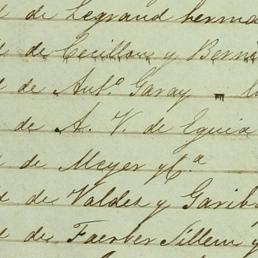 de Legrand herma
de Cecillon y Berna
de Antº Garay
de A. V. de Eguia
de Meyer y Cª
de Valdes y Garib
de Faerber Sillem y